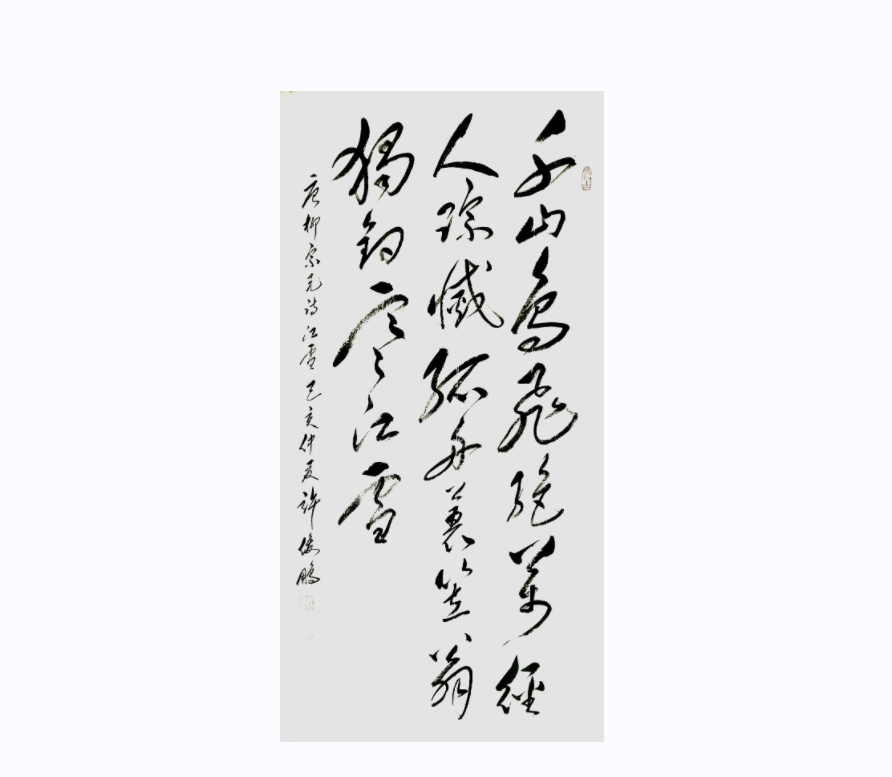 千山鳥飛絕萬徑
人踪滅孤舟蓑笠翁
獨釣寒江雪
唐柳宗元詩江雪己亥仲夏許俊鵬